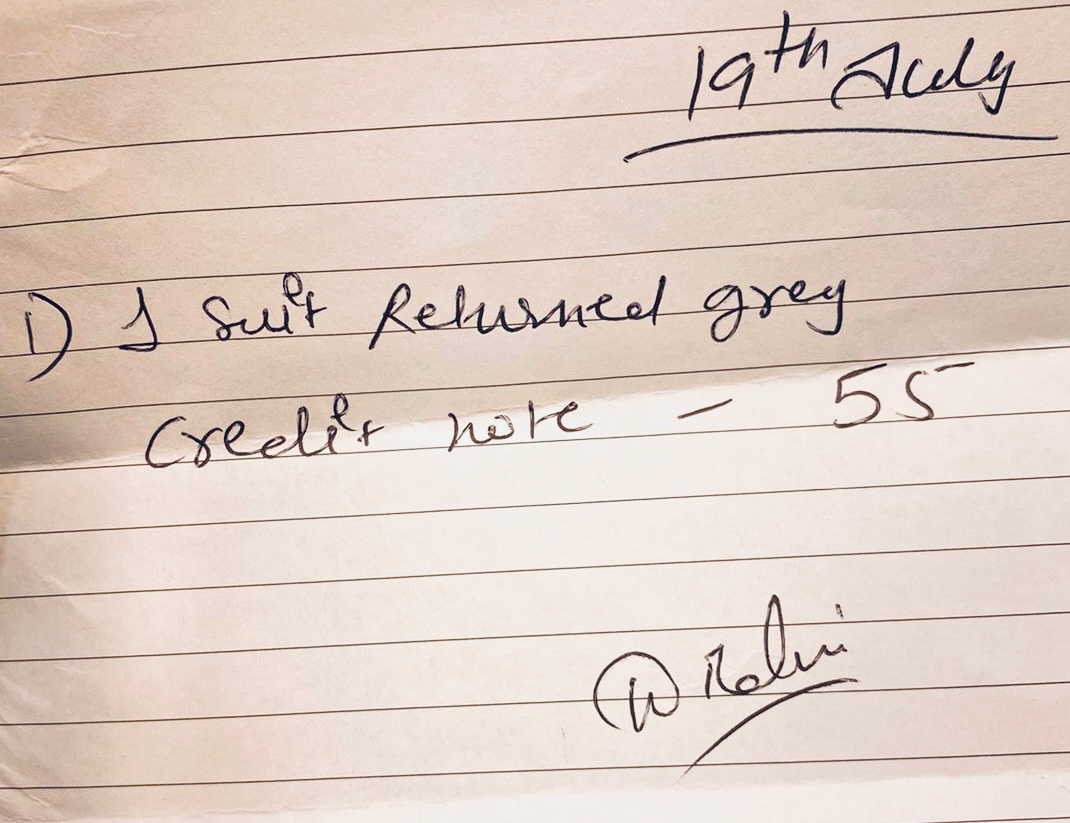 19th July
1) 1 Suit Returned grey
Credit note - 55